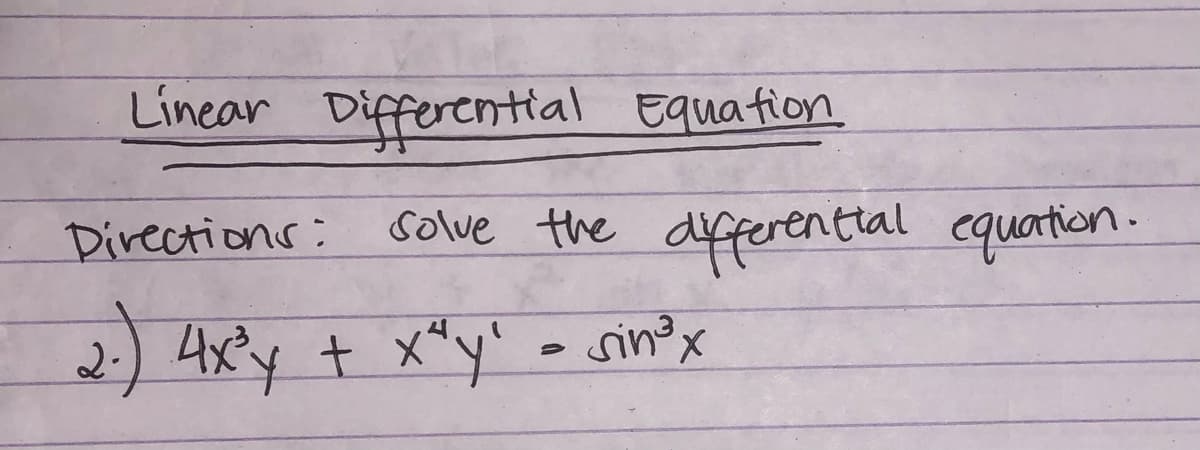 Linear Differential Equation
Directions: Solve the differential equation.
2.) 4x³y + x⁴y' = sin³x